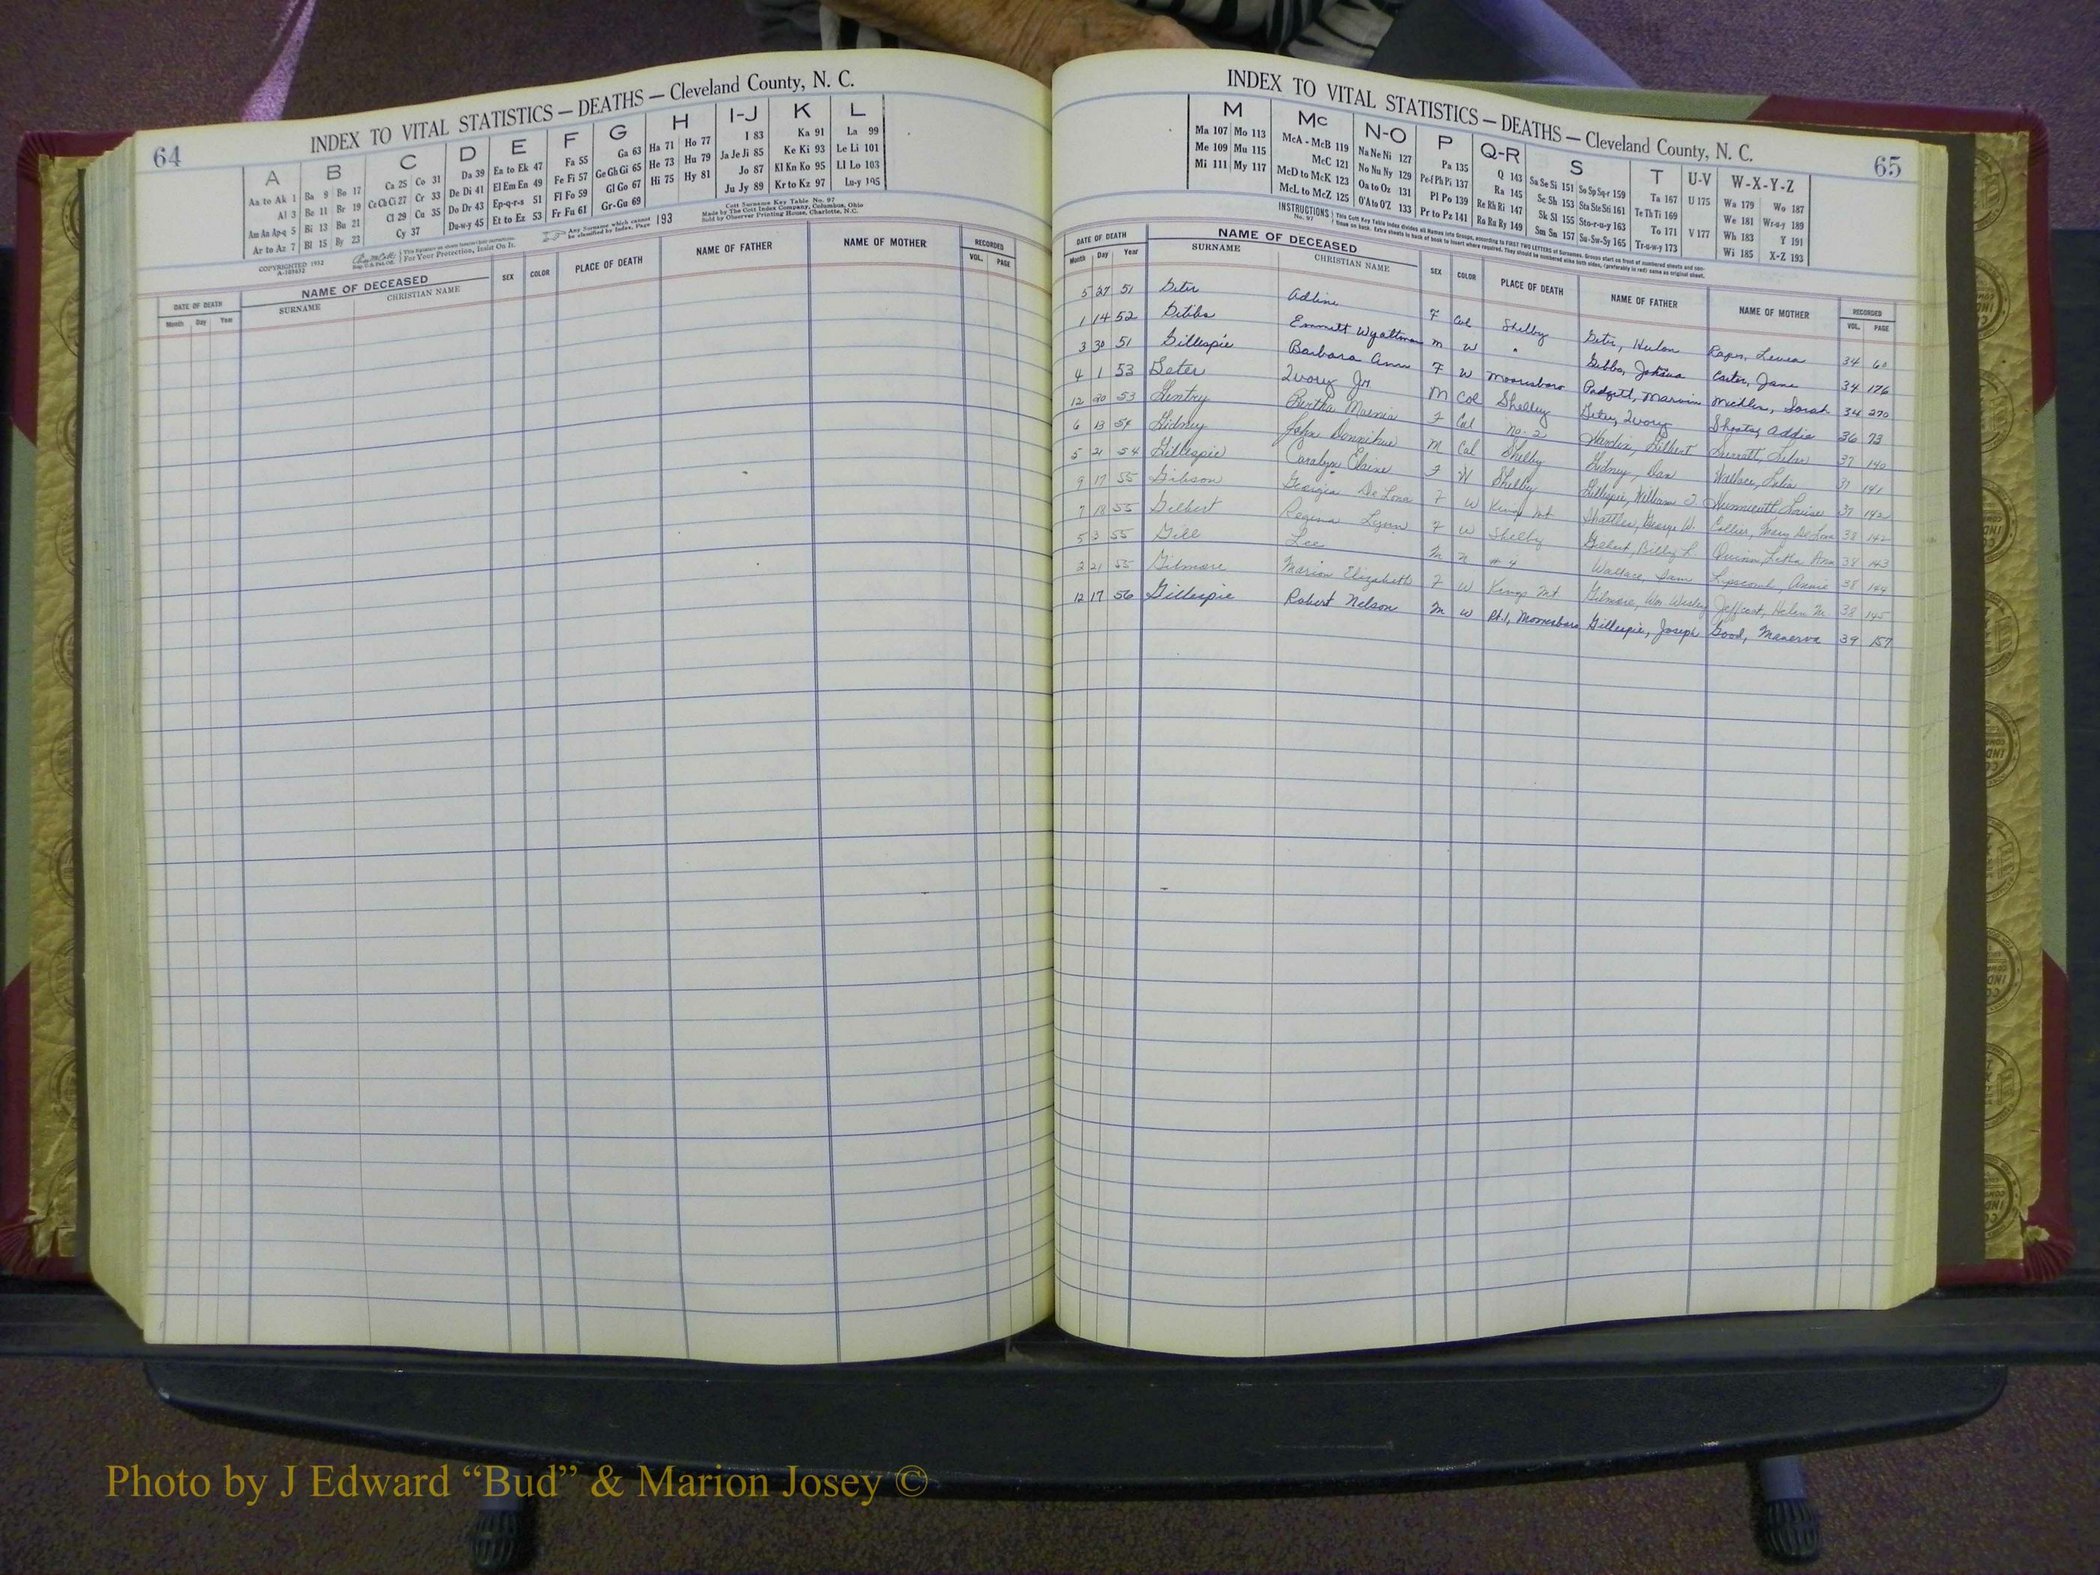 64
INDEX TO VITAL STATISTICS — DEATHS — Cleveland County, N. C.
A B C D E F G H I-J K L
Aa to Ak 1 Ba 9 Bo 17 Ca 25 Co 31 Da 39 Ea to Ek 47 Fa 55 Ga 63 Ha 71 Ho 77 I 83 Ka 91 La 99
Al 3 Be 11 Br 19 Ce Ch Ci 27 Cr 33 De Di 41 El Em En 49 Fe Fi 57 Ge Gh Gi 65 He 73 Hu 79 Ja Je Ji 85 Ke Ki 93 Le Li 101
Am An Ap-q 5 Bi 13 Bu 21 Cl 29 Cu 35 Do Dr 43 Ep-q-r-s 51 Fl Fo 59 Gl Go 67 Hi 75 Hy 81 Jo 87 Kl Kn Ko 95 Ll Lo 103
Ar to Az 7 Bl 15 By 23 Cy 37 Du-w-y 45 Et to Ez 53 Fr Fu 61 Gr-Gu 69 Ju Jy 89 Kr to Kz 97 Lu-y 105
COPYRIGHTED 1932
A-103632
For Your Protection, Insist On It.
Any Surname which cannot be classified by Index, Page 193
Cott Surname Key Table No. 97
Made by The Cott Index Company, Columbus, Ohio
Sold by Observer Printing House, Charlotte, N.C.
DATE OF DEATH NAME OF DECEASED SEX COLOR PLACE OF DEATH NAME OF FATHER NAME OF MOTHER RECORDED
Month Day Year SURNAME CHRISTIAN NAME VOL. PAGE
INDEX TO VITAL STATISTICS — DEATHS — Cleveland County, N. C.
65
M Mc N-O P Q-R S T U-V W-X-Y-Z
Ma 107 Mo 113 McA - McB 119 Na Ne Ni 127 Pa 135 Q 143 Sa Se Si 151 So Sp Sq-r 159 Ta 167 U 175 Wa 179 Wo 187
Me 109 Mu 115 McC 121 No Nu Ny 129 Pe-f Ph Pi 137 Ra 145 Sc Sh 153 Sta Ste Sti 161 Te Th Ti 169 We 181 Wr-u-y 189
Mi 111 My 117 McD to McK 123 Oa to Oz 131 Pl Po 139 Re Rh Ri 147 Sk Sl 155 Sto-r-u-y 163 To 171 V 177 Wh 183 Y 191
McL to McZ 125 O'A to O'Z 133 Pr to Pz 141 Ro Ru Ry 149 Sm Sn 157 Su-Sw-Sy 165 Tr-u-w-y 173 Wi 185 X-Z 193
INSTRUCTIONS No. 97
DATE OF DEATH NAME OF DECEASED SEX COLOR PLACE OF DEATH NAME OF FATHER NAME OF MOTHER RECORDED
Month Day Year SURNAME CHRISTIAN NAME VOL. PAGE
5 27 51 Geter Adline F Col Shelby Geter, 34 60
1 14 52 Gibbs Emmett m W " Gibbs, Joshua Carter, Jane 34 176
3 30 51 Gillespie Barbara Ann F W Mooresboro Padgett, Marvin Sarah 34 270
4 1 53 Geter Ivory Jr M Col Shelby Geter, Ivory Addie 36 73
12 20 53 Gentry Bertha F Col No. 2 Gilbert 37 140
6 13 54 Gidney John M Col Shelby Gidney, Dan Wallace, Lula 37 141
5 21 54 Gillespie Caralyn Elaine F W Shelby Gillespie, William J. Hunnicutt, Louise 37 142
9 17 55 Gibson Georgia De Lona F W Kings Mt George W. Collier, Mary De Lona 38 142
7 18 55 Gilbert Regina Lynn F W Shelby Gilbert, Billy L. Quinn, Letha Ann 38 143
5 3 55 Gill Lee M N # 4 Wallace, Sam Lipscomb, Annie 38 144
2 21 55 Gilmore Marion Elizabeth F W Kings Mt Gilmore, Wm Wesley Jeffcoat, Helen M. 38 145
12 17 56 Gillespie Robert Nelson M W Rt. 1, Mooresboro Gillespie, Joseph Good, Manerva 39 157
Photo by J Edward “Bud” & Marion Josey ©